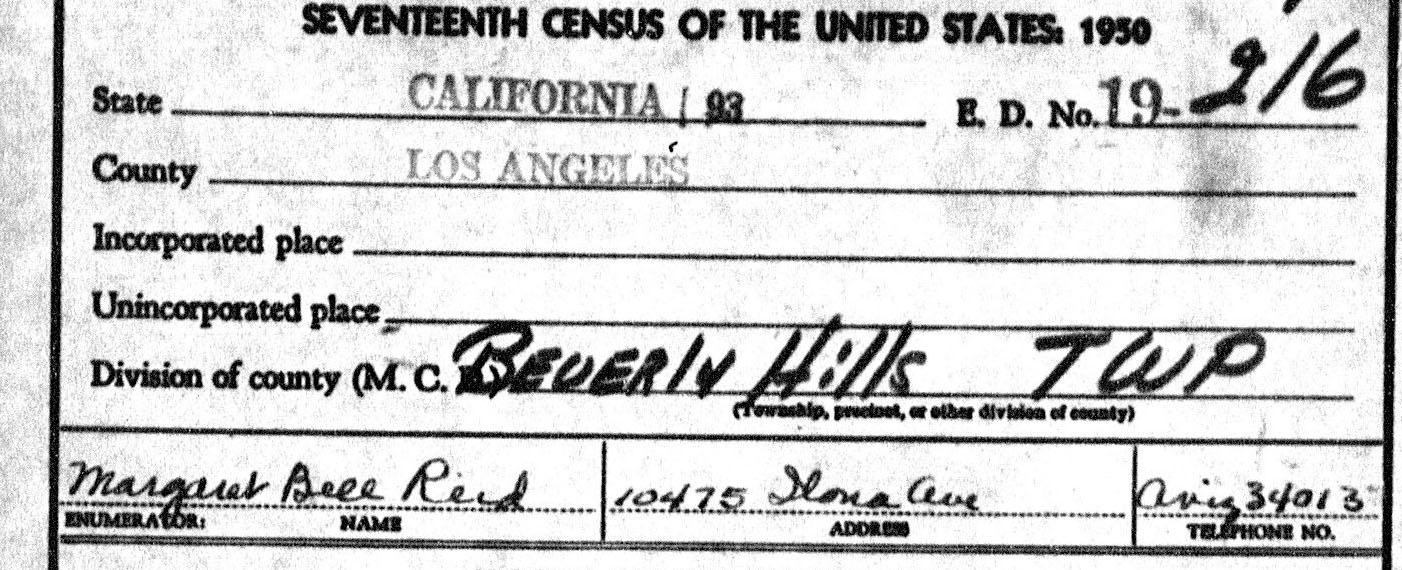 SEVENTEENTH CENSUS OF THE UNITED STATES: 1950
State CALIFORNIA | 93 E. D. No. 19-216
County LOS ANGELES
Incorporated place
Unincorporated place
Division of county (M. C. D.) BEVERLY Hills TWP
(Township, precinct, or other division of county)
Margaret Bell Reid 10475 Ilona Ave 34013
ENUMERATOR: NAME ADDRESS TELEPHONE NO.